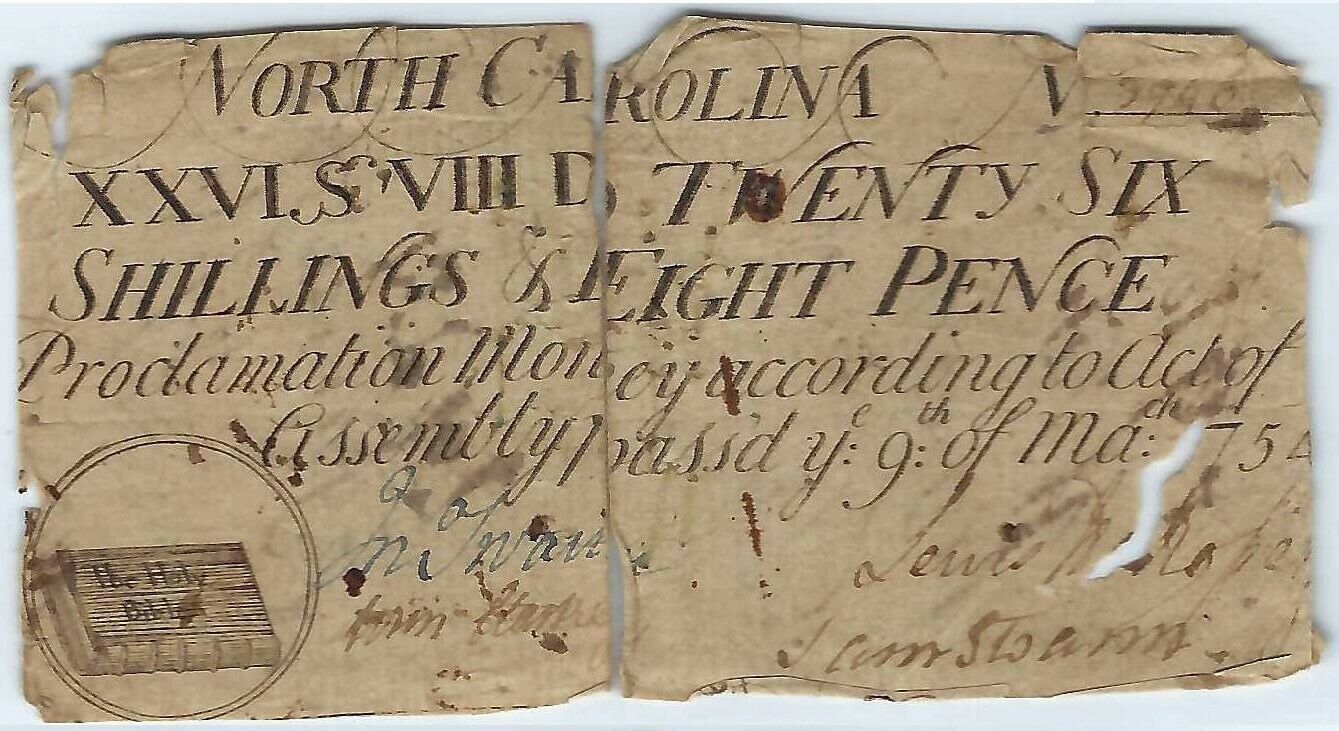 NORTH CAROLINA N
XXVI S. VIII D. TWENTY SIX
SHILLINGS & EIGHT PENCE
Proclamation Money according to Act of
Assembly pass'd ye: 9:th of Ma:ch 1754
The Holy
Bible
Jn Swann
Lewis
Sam Swann